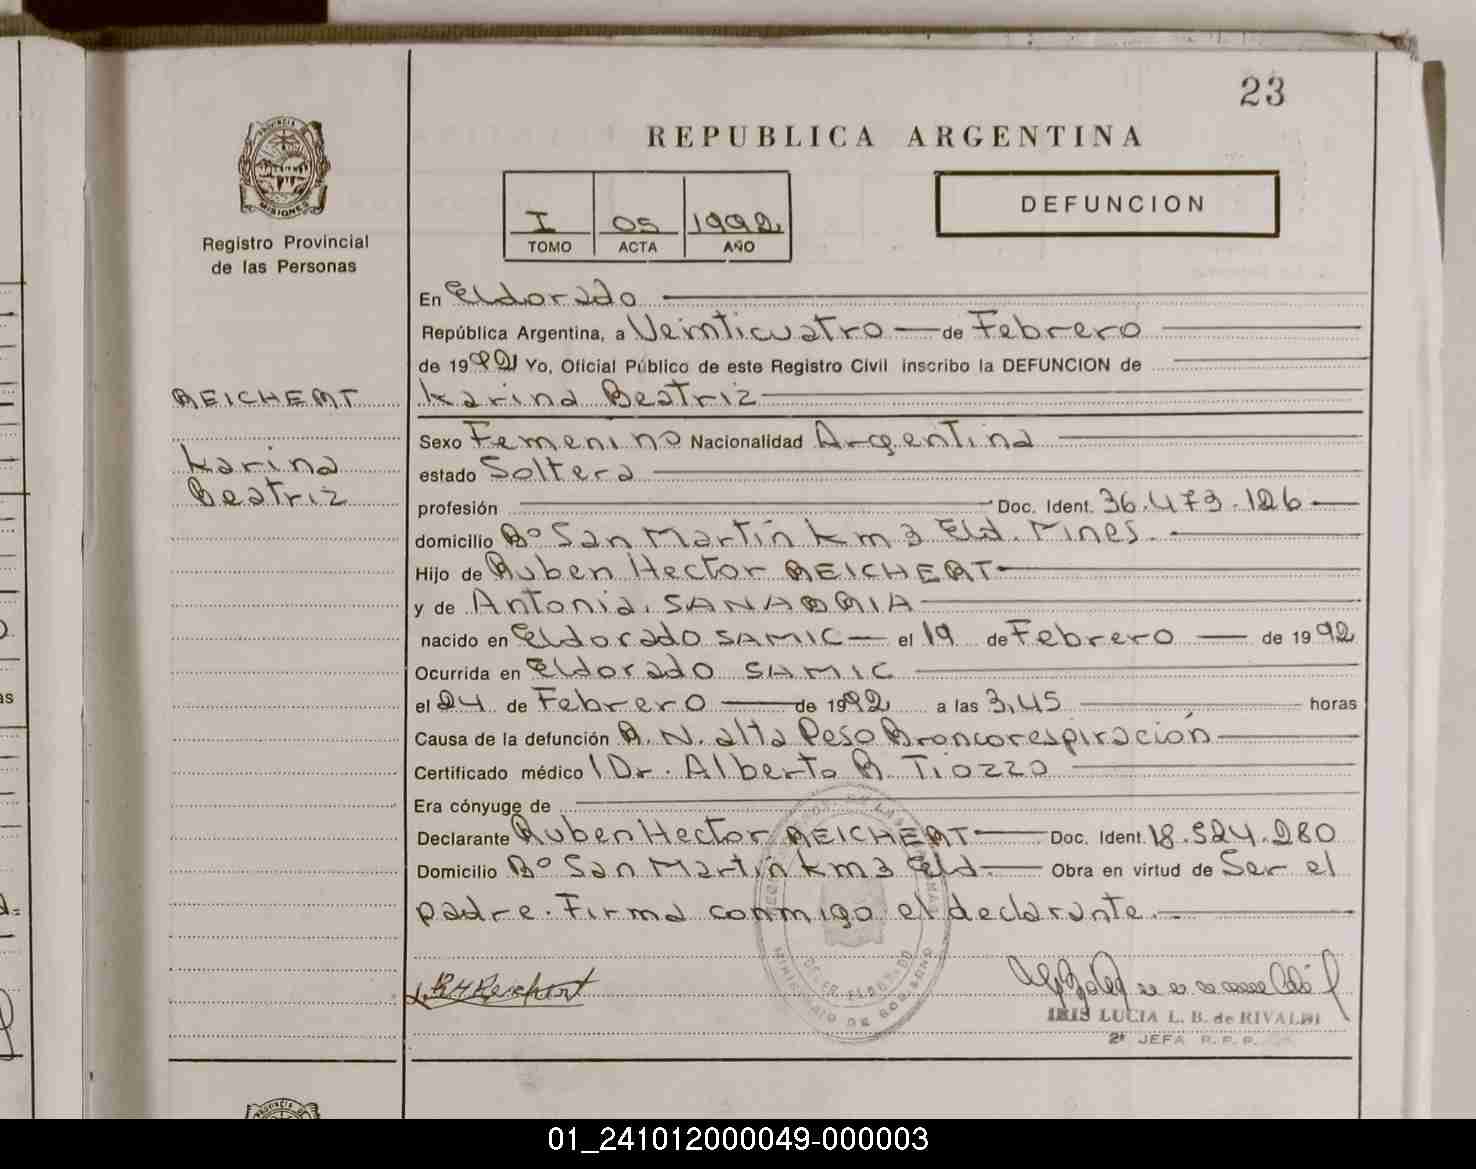 23
REPUBLICA ARGENTINA
PROVINCIA DE
MISIONES
I 05 1992
TOMO ACTA AÑO
DEFUNCION
Registro Provincial
de las Personas
En Eldorado
República Argentina, a Veinticuatro de Febrero
de 1992 Yo, Oficial Público de este Registro Civil inscribo la DEFUNCION de
REICHERT
Karina Beatriz
Sexo Femenino Nacionalidad Argentina
Karina
estado Soltera
Beatriz
profesión Doc. Ident. 36.473.126
domicilio Bº San Martín km 3 Eld. Mnes.
Hijo de Ruben Hector REICHERT
y de Antonia. SANABRIA
nacido en Eldorado SAMIC el 19 de Febrero de 1992
Ocurrida en Eldorado SAMIC
el 24 de Febrero de 1992 a las 3,45 horas
Causa de la defunción R.N. alta Peso Broncorespiración
Certificado médico Dr. Alberto R. Tiozzo
Era cónyuge de
Declarante Ruben Hector REICHERT Doc. Ident. 18.524.280
Domicilio Bº San Martín km 3 Eld. Obra en virtud de Ser el
padre. Firma conmigo el declarante.
MINISTERIO DE GOBIERNO
R H Reichert
IRIS LUCIA L. B. de RIVALDI
2ª JEFA R. P. P.
01_241012000049-000003